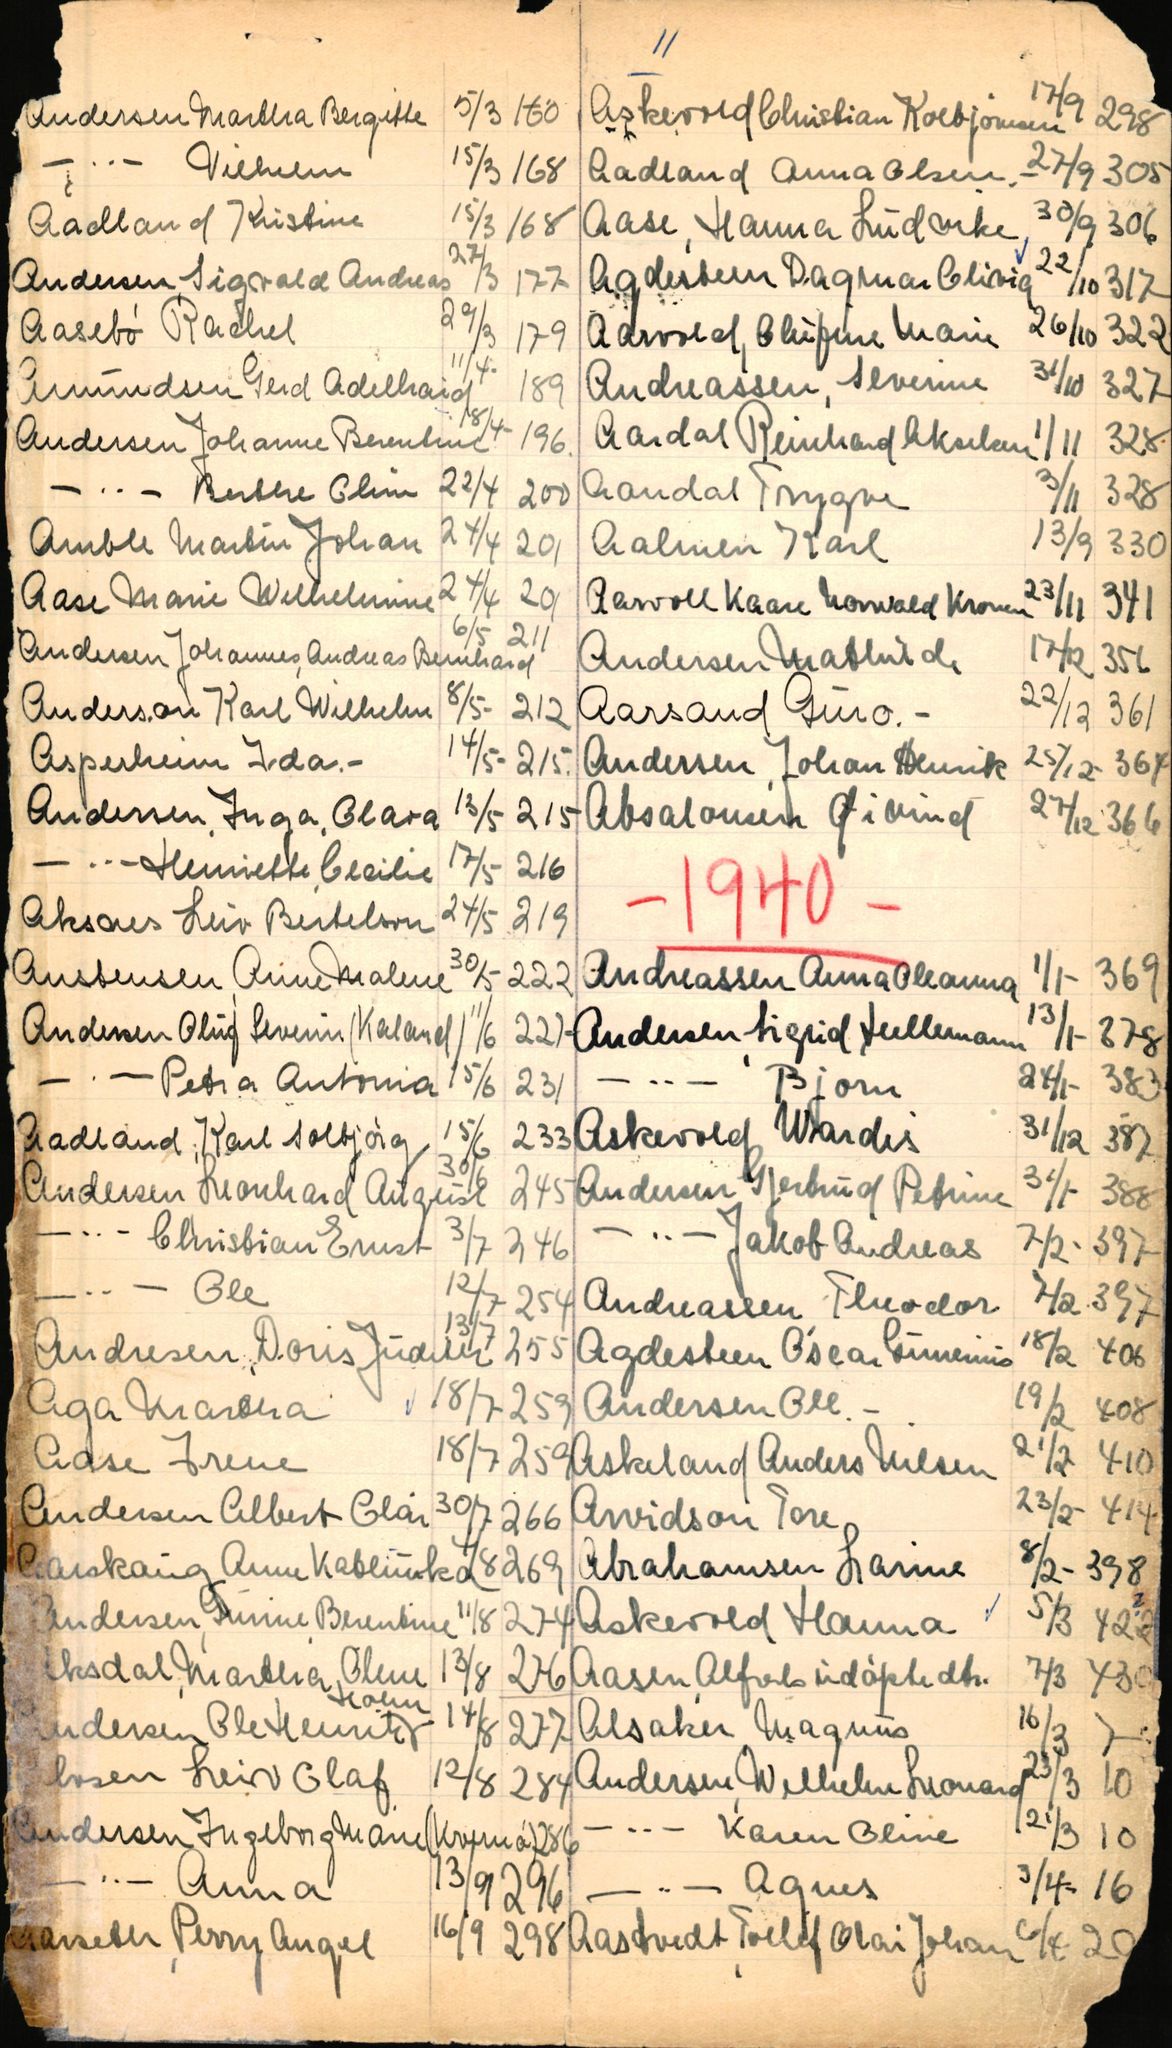 11
Andersen Martha Bergitte 5/3 160
— " — Vilhelm 15/3 168
Aadland Kristine 15/3 168
Andersen, Sigvald Andreas 27/3 177
Aasebö Rachel 29/3 179
Amundsen Gerd Adelhaid 11/4- 189
Andersen Johanne Berentine 18/4- 196.
— " — Berthe Oline 22/4 200
Amble Martin Johan 24/4 201
Aase Marie Wilhelmine 24/4 201
Andersen Johannes, Andreas Bernhard 6/5 211
Anderson Karl Wilhelm 8/5- 212
Asperheim Ida.- 14/5- 215.
Andersen, Inga, Clara 13/5 215
— " — Henriette, Cecilie 17/5 216
Aksnes Leiv Bertelson 24/5 219
Anstensen, Anne Malene 30/5 222
Andersen Oluf Severin (Kaland) 11/6 227
— " — Petra Antonia 15/6 231
Aadland, Karl Solbjörg 15/6 233
Andersen Leonhard August 30/6 245
— " — Christian Ernst 3/7 246
— " — Ole 12/7 254
Andresen, Doris Judith 13/7 255
Aga Martha 18/7- 259
Aase Irene 18/7 259
Andersen Albert Olai 30/7 266
Aarskaug Anne Kathinka 2/8 269
Andersen, Gurine, Berentine 11/8 274
ksdal, Martha, Oline 13/8 276
ndersen Ole Henrik Holm 14/8 277
bsen Leiv Olaf 12/8 284
Andersen Ingeborg Marie 286
— " — Anna 13/9 296
Aarseth, Perry Angel 16/9 298
Askevold Christian Kolbjörnsen 17/9 298
Aadland Anna Olsen.- 27/9 305
Aase, Hanna Ludvike 30/9 306
Agdesteen Dagmar 22/10 317
Aarvold, Marie 26/10 322
Andreassen, Severine 31/10 327
Aardal Reinhard Akselsen 1/11 328
Aandal Trygve 3/11 328
Aalmen Karl 13/9 330
Aarvoll Kaare Norwald Kronen 23/11 341
Andersen Mathilde 17/12 356
Aarsand Guro.- 22/12 361
Andersen, Johan Henrik 25/12- 364
Absalonsen Öivind 27/12 366
- 1940 -
Andreassen Anna Oleanna 1/1- 369
Andersen, Sigrid, Hellemann 13/1- 378
— " — Bjorn 24/1- 383
Askevold Wardis 31/12 387
Andersen Gjertrud Petrine 31/1- 388
— " — Jakob Andreas 7/2- 397
Andreassen Theodor 7/2 397
Agdesteen Oscar 18/2 406
Andersen Ole.- 19/2 408
Askeland Anders Nilsen 21/2 410
Arvidson Tore 23/2- 414
Abrahamsen Larine 8/2- 398
Askevold Hanna 5/3 422
Aasen, Alfreds udöpte dtr. 7/3 430
Alsaker Magnus 16/3 7
Andersen, Wilhelm Leonard 23/3 10
— " — Karen Oline 21/3 10
— " — Agnes 3/4- 16
Aastvedt, Tollef Olai Johan 6/4 20